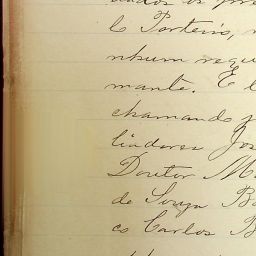 o Porteiro,
nhum requ
mante. E
chamando p
liadores Jos
Doutor M
de Souza Ba
co Carlos B